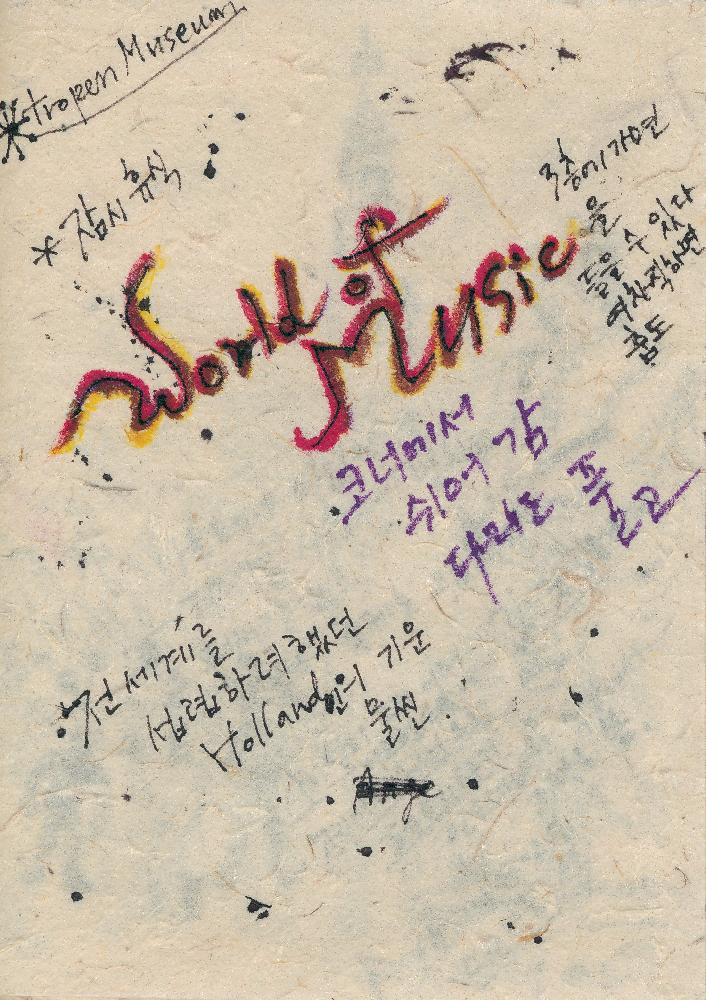 *tropen Museum
* 잠시 휴식
3층에 가면
을
들을 수 있다
꿈도
World of
Music
코너에서
쉬어 감
다리도 풀고
전 세계를
섭렵하려 했던
Holland인의 기운
물씬.